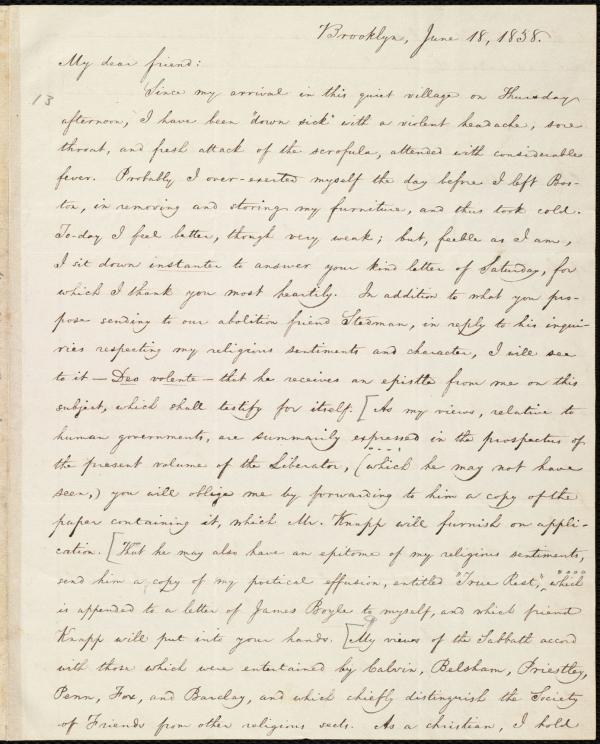 Brooklyn, June 18, 1838.
My dear friend:
13
Since my arrival in this quiet village on Thursday
afternoon, I have been "down sick" with a violent headache, sore
throat, and fresh attack of the scrofula, attended with considerable
fever. Probably I over-exerted myself the day before I left Bos-
ton, in removing and storing my furniture, and thus took cold.
To-day I feel better, though very weak; but, feeble as I am,
I sit down instanter to answer your kind letter of Saturday, for
which I thank you most heartily. In addition to what you pro-
pose sending to our abolition friend Stedman, in reply to his inqui-
ries respecting my religious sentiments and character, I will see
to it — Deo volente — that he receives an epistle from me on this
subject, which shall testify for itself. [As my views, relative to
human governments, are summarily expressed in the prospectus of
the present volume of the Liberator, (which he may not have
seen,) you will oblige me by forwarding to him a copy of the
paper containing it, which Mr. Knapp will furnish on appli-
cation. [That he may also have an epitome of my religious sentiments,
send him a copy of my poetical effusion, entitled "True Rest," which
is appended to a letter of James Boyle to myself, and which friend
Knapp will put into your hands. [My views of the Sabbath accord
with those which were entertained by Calvin, Belsham, Priestley,
Penn, Fox, and Barclay, and which chiefly distinguish the Society
of Friends from other religious sects. As a christian, I hold